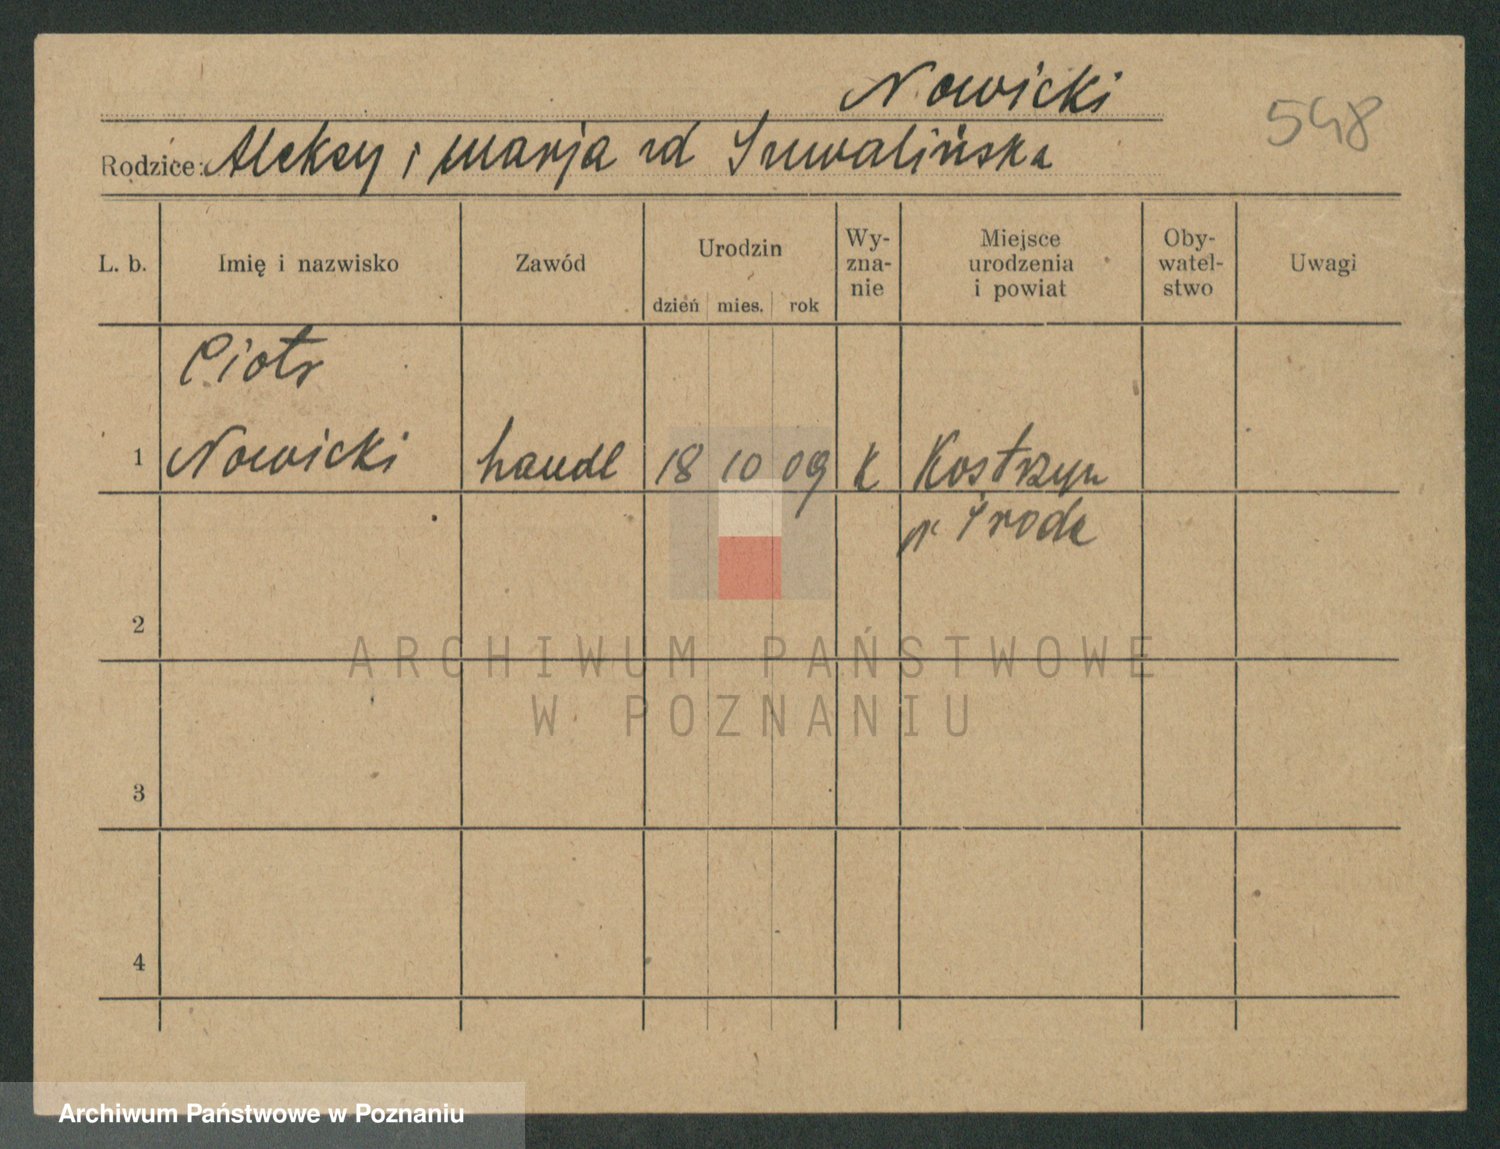 Nowicki
548
Rodzice: Aleksy i Marja rd Suwalińska
L. b. Imię i nazwisko Zawód Urodzin Wy-
zna-
nie Miejsce
urodzenia
i powiat Oby-
watel-
stwo Uwagi
dzień mies. rok
Piotr
1 Nowicki handl 18 10 09 K Kostrzyn
p Środa
2
ARCHIWUM PAŃSTWOWE
W POZNANIU
3
4
Archiwum Państwowe w Poznaniu